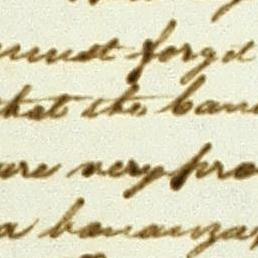 must forget
that the ban
are very pro
a bonanza,